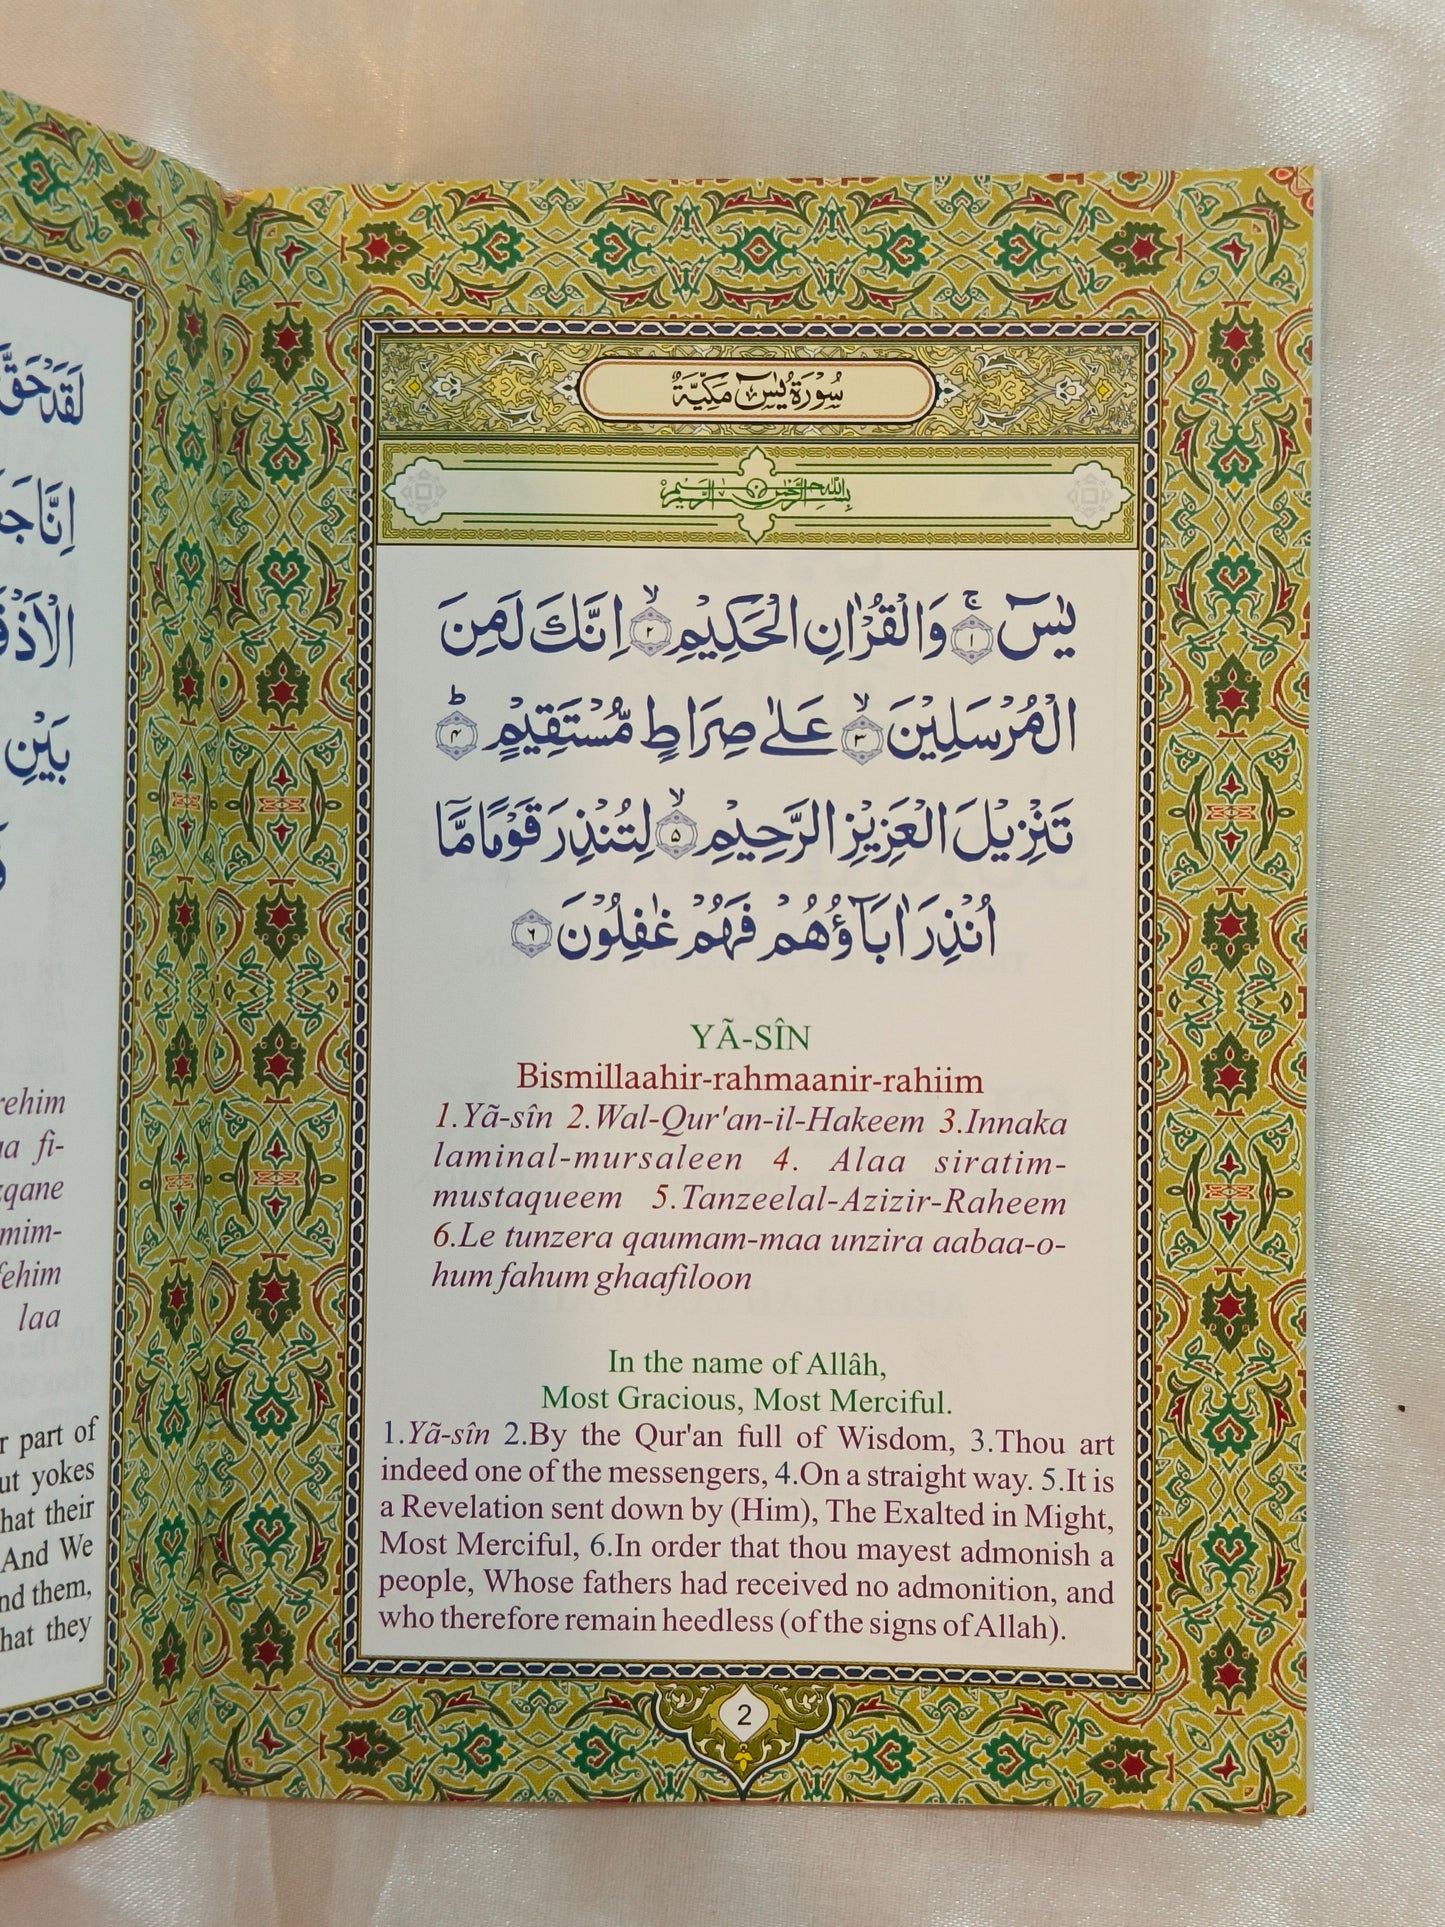 سُوْرَةُ يٰسٓ مَكِّيَّةٌ
بِسْمِ اللّٰهِ الرَّحْمٰنِ الرَّحِيْمِ
يٰسٓ ۚ ۝١ وَالْقُرْاٰنِ الْحَكِيْمِ ۙ ۝٢ اِنَّكَ لَمِنَ
الْمُرْسَلِيْنَ ۙ ۝٣ عَلٰى صِرَاطٍ مُّسْتَقِيْمٍ ؕ ۝٤
تَنْزِيْلَ الْعَزِيْزِ الرَّحِيْمِ ۙ ۝٥ لِتُنْذِرَ قَوْمًا مَّآ
اُنْذِرَ اٰبَآؤُهُمْ فَهُمْ غٰفِلُوْنَ ۝٦
YÃ-SÎN
Bismillaahir-rahmaanir-rahiim
1.Yã-sîn 2.Wal-Qur'an-il-Hakeem 3.Innaka
laminal-mursaleen 4. Alaa siratim-
mustaqueem 5.Tanzeelal-Azizir-Raheem
6.Le tunzera qaumam-maa unzira aabaa-o-
hum fahum ghaafiloon
In the name of Allâh,
Most Gracious, Most Merciful.
1.Yã-sîn 2.By the Qur'an full of Wisdom, 3.Thou art
indeed one of the messengers, 4.On a straight way. 5.It is
a Revelation sent down by (Him), The Exalted in Might,
Most Merciful, 6.In order that thou mayest admonish a
people, Whose fathers had received no admonition, and
who therefore remain heedless (of the signs of Allah).
2
لَقَدْ حَقَّ
اِنَّا
بَيْنِ
laa
part of
yokes
their
And We
them,
they